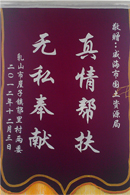 敬赠：威海市国土资源局
真情帮扶
无私奉献
乳山市崖子镇邵里村两委
二〇一二年十二月三日